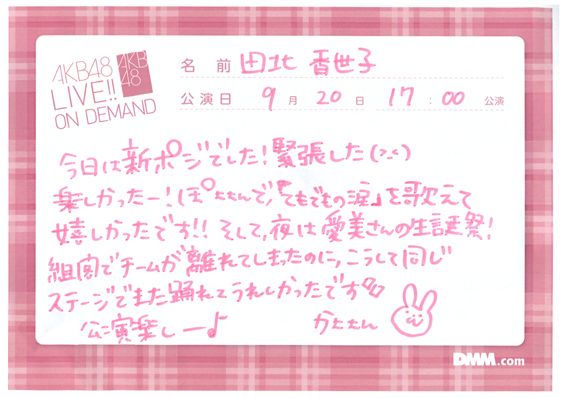 AKB48
LIVE!!
ON DEMAND
AKB
48
名 前 田北 香世子
公演日 9 月 20 日 17 : 00 公演
今日は新ポジでした!緊張した(><)
楽しかったー!ぽんちゃんで「てもでもの涙」を歌えて
嬉しかったです!!そして、夜は愛美さんの生誕祭!
組閣でチームが離れてしまったのに、こうして同じ
ステージでまた踊れてうれしかったです
公演楽しー♪
かとたん
DMM.com